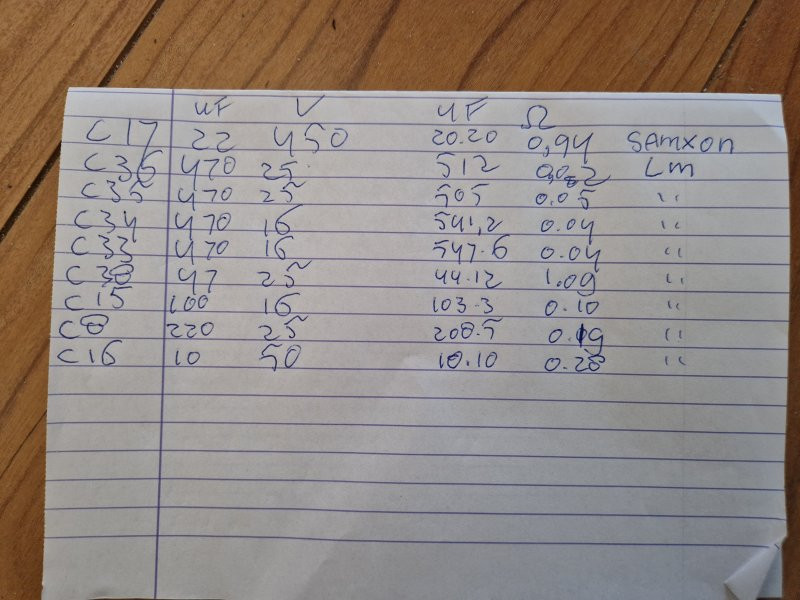 uF V uF Ω
C17 22 450 20.20 0,94 SAMXON
C36 470 25 512 Lm
C35 470 25 505 0.05 "
C34 470 16 541,2 0.04 "
C33 470 16 547.6 0.04 "
47 25 44.12 1.09 "
C15 100 16 103.3 0.10 "
C8 220 25 208.5 0.19 "
C16 10 50 10.10 0.28 "